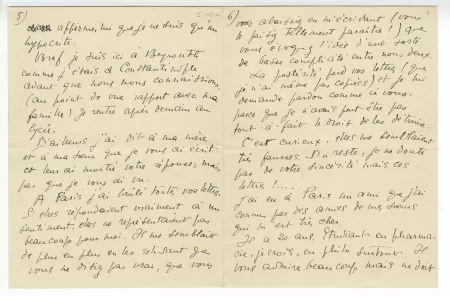 5)
affirmer, un que je ne suis qu'un
hypocrite.
Bref je suis ici à Beyrouth
comme j'étais à Constantinople
avant que nous nous connaissions
(au point de vue rapport avec ma
famille). Je rentre après demain au
lycée.
D'ailleurs j'ai dit à ma mère
et à ma sœur que je vous ai écrit
et leur ai montré votre réponse, mais
pas que je vous ai vu.
A Paris j'ai brûlé toutes vos lettres
Si elles répondaient vraiment à un
sentiment, elles ne représentaient pas
beaucoup pour moi. Il me semblait
de plus en plus en les relisant que
vous ne disiez pas vrai, que vous
6)
vous abaissiez en m'écrivant (vous
le faisiez tellement paraître !) que
vous évoquiez l'idée d'une sorte
de basse complicité entre nous deux.
La postérité perd vos lettres (que
je n'ai même pas copiées) et je lui
demande pardon comme à vous,
parce que je n'avais peut être pas
tout-à-fait le droit de les détruire.
C'est curieux, elles me semblaient
très fausses. Du reste, je ne doute
pas de votre sincérité mais ces
lettres !....
J'ai eu à Paris un ami que j'ai
connu par des amies de ma sœur
qui m'est très cher.
Il a 20 ans. Étudiant en pharma-
cie, je crois, en philo surtout. Il
vous admire beaucoup mais ne doit